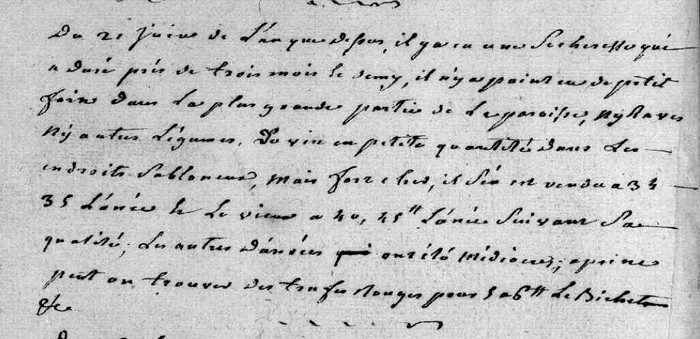 Du 21 juin de L'an que dessus, il y a eu une Secheresse qui
a duré près de trois mois le demy, il n'y a point eu de petit
foin dans La plus grande partie de Le paroisse, ny Raves
Ny autres Légumes. Du vin en petite quantité dans Les
endroits Sabloneux, mais fort cher, il S'en est vendu a 34
35 L'anée & Le vieux a 40, 45 tt L'anée Suivant Sa
qualité; Les autres danrées ont été médiocres; a peine
peut on trouver des trufes Rouges pour 5 a 6 tt Le Bichet
&c